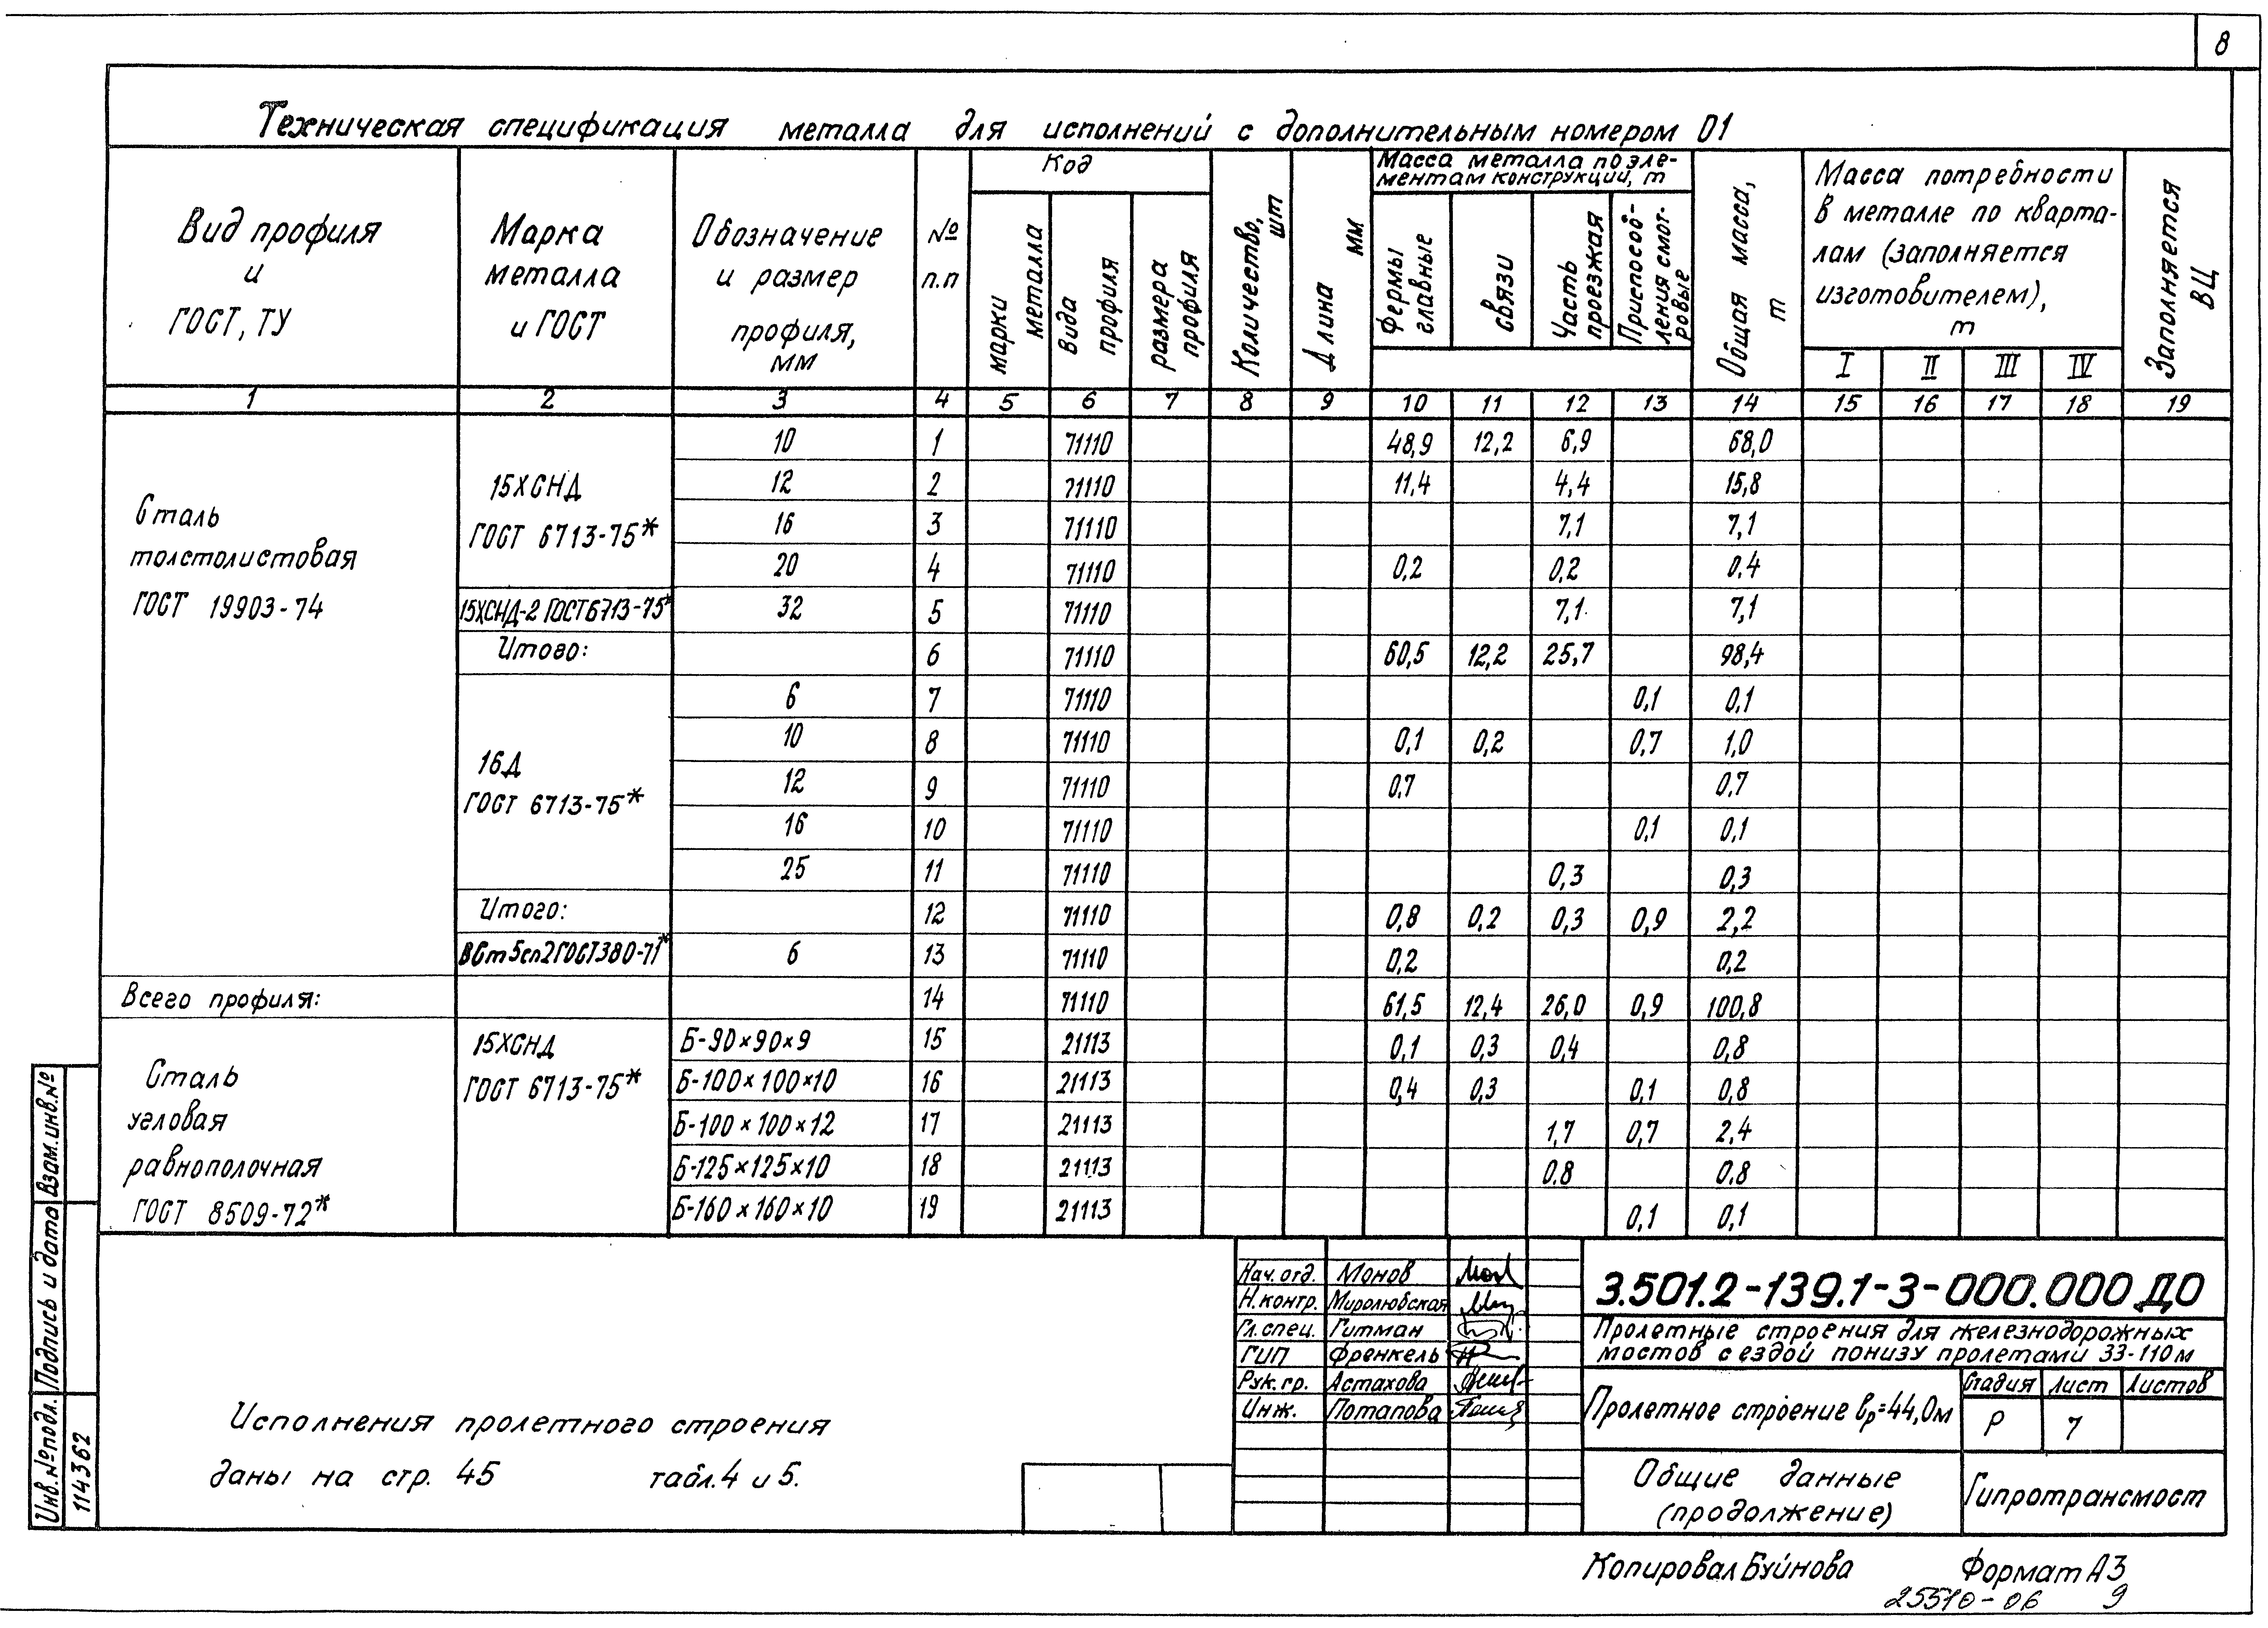 8
Техническая спецификация металла для исполнений с дополнительным номером 01
Вид профиля и ГОСТ, ТУ
Марка металла и ГОСТ
Обозначение и размер профиля, мм
№ п.п
Код
марки металла
вида профиля
размера профиля
Количество, шт
Длина мм
Масса металла по эле-
ментам конструкций, т
Фермы главные
связи
Часть проезжая
Приспособ-
ления смот-
ровые
Общая масса, т
Масса потребности
в металле по кварта-
лам (заполняется
изготовителем),
т
I II III IV
Заполняется ВЦ
1 2 3 4 5 6 7 8 9 10 11 12 13 14 15 16 17 18 19
Сталь
толстолистовая
ГОСТ 19903-74
15ХСНД
ГОСТ 6713-75*
10 1 71110 48,9 12,2 6,9 68,0
12 2 71110 11,4 4,4 15,8
16 3 71110 7,1 7,1
20 4 71110 0,2 0,2 0,4
15ХСНД-2 ГОСТ 6713-75* 32 5 71110 7,1 7,1
Итого: 6 71110 60,5 12,2 25,7 98,4
16Д
ГОСТ 6713-75*
6 7 71110 0,1 0,1
10 8 71110 0,1 0,2 0,7 1,0
12 9 71110 0,7 0,7
16 10 71110 0,1 0,1
25 11 71110 0,3 0,3
Итого: 12 71110 0,8 0,2 0,3 0,9 2,2
ВСт5сп2 ГОСТ 380-71* 6 13 71110 0,2 0,2
Всего профиля: 14 71110 61,5 12,4 26,0 0,9 100,8
Сталь
угловая
равнополочная
ГОСТ 8509-72*
15ХСНД
ГОСТ 6713-75*
Б-90×90×9 15 21113 0,1 0,3 0,4 0,8
Б-100×100×10 16 21113 0,4 0,3 0,1 0,8
Б-100×100×12 17 21113 1,7 0,7 2,4
Б-125×125×10 18 21113 0,8 0,8
Б-160×160×10 19 21113 0,1 0,1
Взам.инв.№
Подпись и дата
Инв.№ подл.
114362
Исполнения пролетного строения
даны на стр. 45 табл.4 и 5.
Нач.отд. Монов
Н.контр. Миролюбская
Гл.спец. Гитман
ГИП Френкель
Рук.гр. Астахова
Инж. Потапова
3.501.2-139.1-3-000.000 ДО
Пролетные строения для железнодорожных
мостов с ездой понизу пролетами 33-110м
Пролетное строение ℓр=44,0м
Стадия Лист Листов
Р 7
Общие данные
(продолжение)
Гипротрансмост
Копировал Буйнова Формат А3
25510-06 9